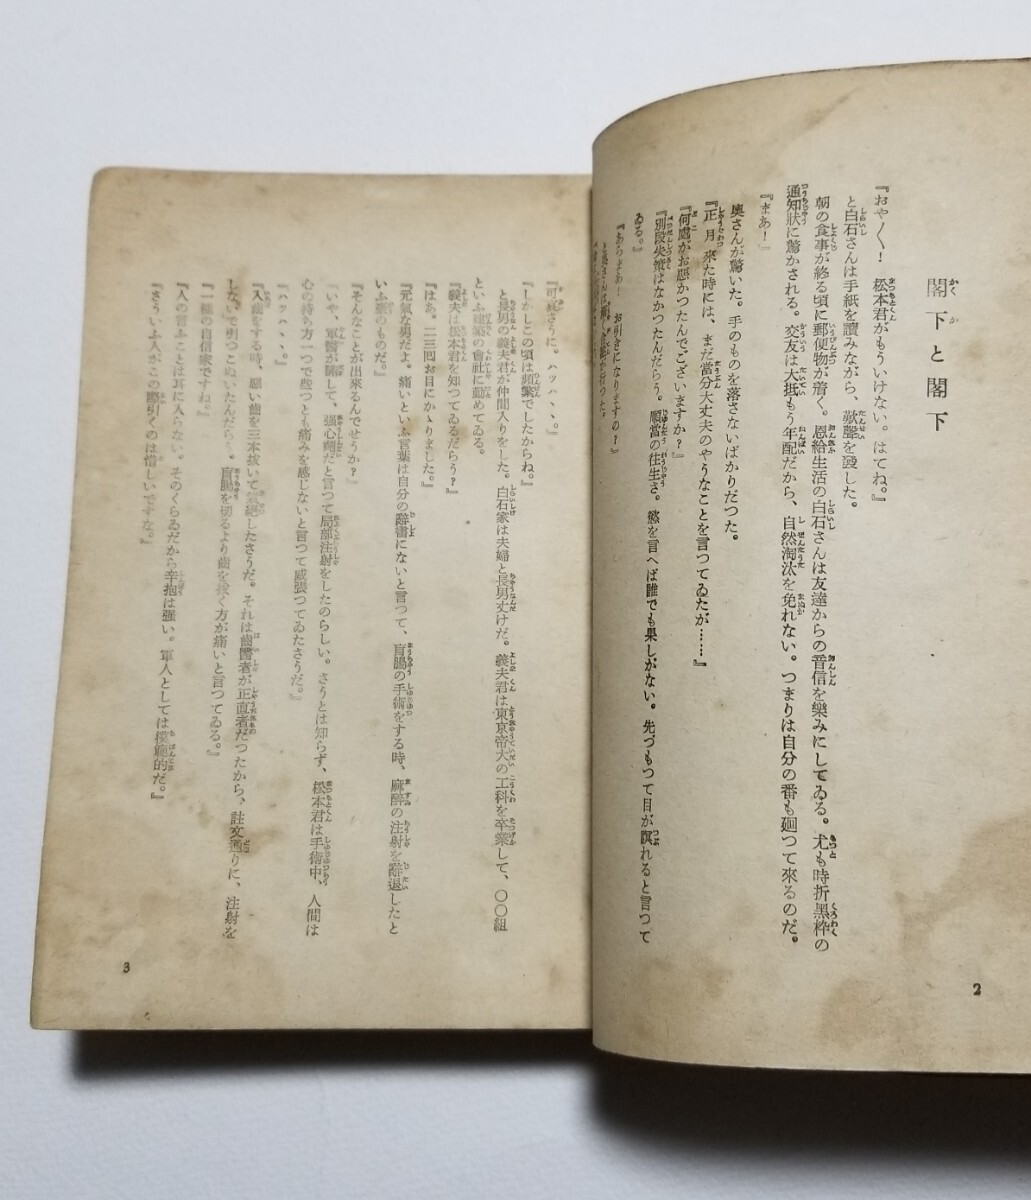 閣下と閣下
『おや〱！ 松本君がもういけない。はてね。』
と白石さんは手紙を讀みながら、歎聲を發した。
朝の食事が終る頃に郵便物が着く。恩給生活の白石さんは友達からの音信を樂みにしてゐる。尤も時折黑枠の
通知狀に驚かされる。交友は大抵もう年配だから、自然淘汰を免れない。つまりは自分の番も廻つて來るのだ。
『まあ！』
奥さんが驚いた。手のものを落さないばかりだつた。
『正月來た時には、まだ當分大丈夫のやうなことを言つてゐたが……』
『何處がお惡かつたんでございますか？』
『別段失策はなかつたんだらう。順當の往生さ。慾を言へば誰でも果しがない。先づもつて目が瞑れると言つて
ゐる。』
『あらまあ！ お引きになりますの？』
2
さうに。ハッハ、、。』
『しかしこの頃は頻繁でしたからね。』
と長男の義夫君が仲間入りをした。白石家は夫婦と長男丈けだ。義夫君は東京帝大の工科を卒業して、〇〇組
といふ建築の會社に勤めてゐる。
『義夫は松本君を知つてゐるだらう？』
『はあ。二三回お目にかゝりました。』
『元氣な男だよ。痛いといふ言葉は自分の辭書にないと言つて、盲腸の手術をする時、麻醉の注射を辭退したと
いふ豪のものだ。』
『そんなことが出來るんでせうか？』
『いや、軍醫が騙して、强心劑だと言つて局部注射をしたのらしい。さうとは知らず、松本君は手術中、人間は
心の持ち方一つで些つとも痛みを感じないと言つて威張つてゐたさうだ。』
『ハッハ、、、。』
『入齒をする時、惡い齒を三本拔いて氣絕したさうだ。それは齒醫者が正直者だつたから、註文通りに、注射を
しないで引つこぬいたんだらう。盲腸を切るより齒を拔く方が痛いと言つてゐる。』
『一種の自信家ですね。』
『人の言ふことは耳に入らない。そのくらゐだから辛抱は强い。軍人としては模範的だ。』
『さういふ人がこの際引くのは惜しいですな。』
3